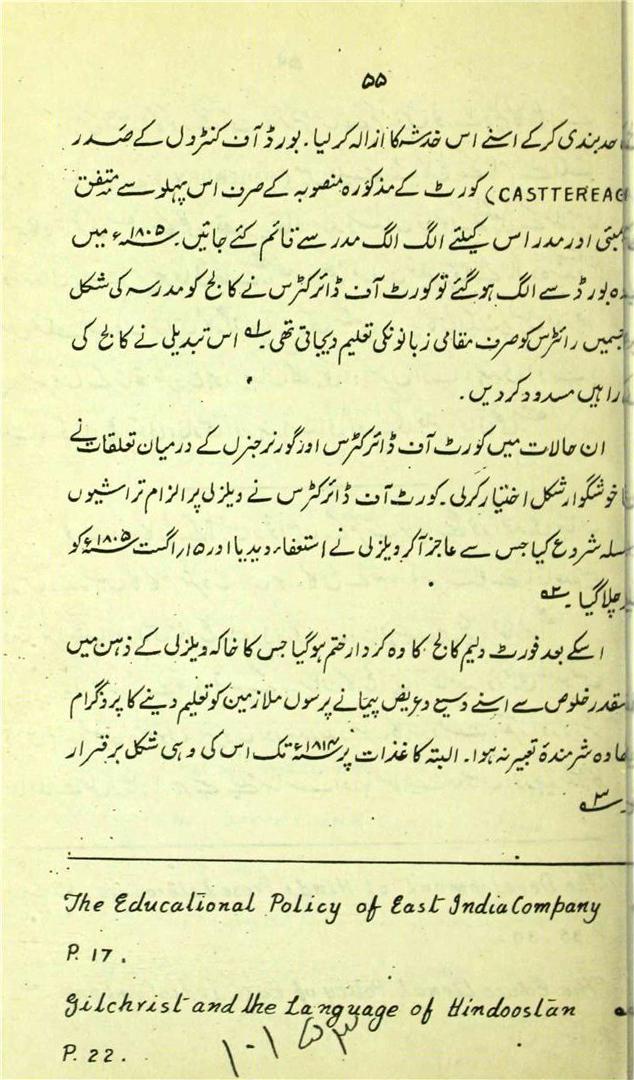 ۵۵
حد بندی کرکے اسنے اس خدشہ کا ازالہ کر لیا۔ بورڈ آف کنٹرول کے صدر
(CASTTEREAG کورٹ کے مذکورہ منصوبہ کے صرف اس پہلو سے متفق
بمبئی اور مدراس کیلئے الگ الگ مدرسے قائم کئے جائیں۔ ۱۸۰۵ء میں
بورڈ سے الگ ہوگئے تو کورٹ آف ڈائرکٹرس نے کالج کو مدرسہ کی شکل
جسمیں رائٹرس کو صرف مقامی زبانونکی تعلیم دیجاتی تھی ۱ اس تبدیلی نے کالج کی
راہیں مسدود کر دیں۔
ان حالات میں کورٹ آف ڈائرکٹرس اور گورنر جنرل کے درمیان تعلقات نے
خوشگوار شکل اختیار کرلی۔ کورٹ آف ڈائرکٹرس نے ویلزلی پر الزام تراشیوں
سلہ شروع کیا جس سے عاجز آکر ویلزلی نے استعفاء دیدیا اور ۱۵؍ اگست ۱۸۰۵ء کو
چلا گیا ۲
اسکے بعد فورٹ ولیم کالج کا وہ کردار ختم ہوگیا جس کا خاکہ ویلزلی کے ذہن میں
قدر خلوص سے اسنے وسیع و عریض پیمانے پر سول ملازمین کو تعلیم دینے کا پروگرام
وہ شرمندۂ تعبیر نہ ہوا۔ البتہ کاغذات پر ۱۸۱۴ء تک اس کی وہی شکل برقرار
۳
The Educational Policy of East India Company
P. 17.
Gilchrist and the Language of Hindoostan
P. 22.